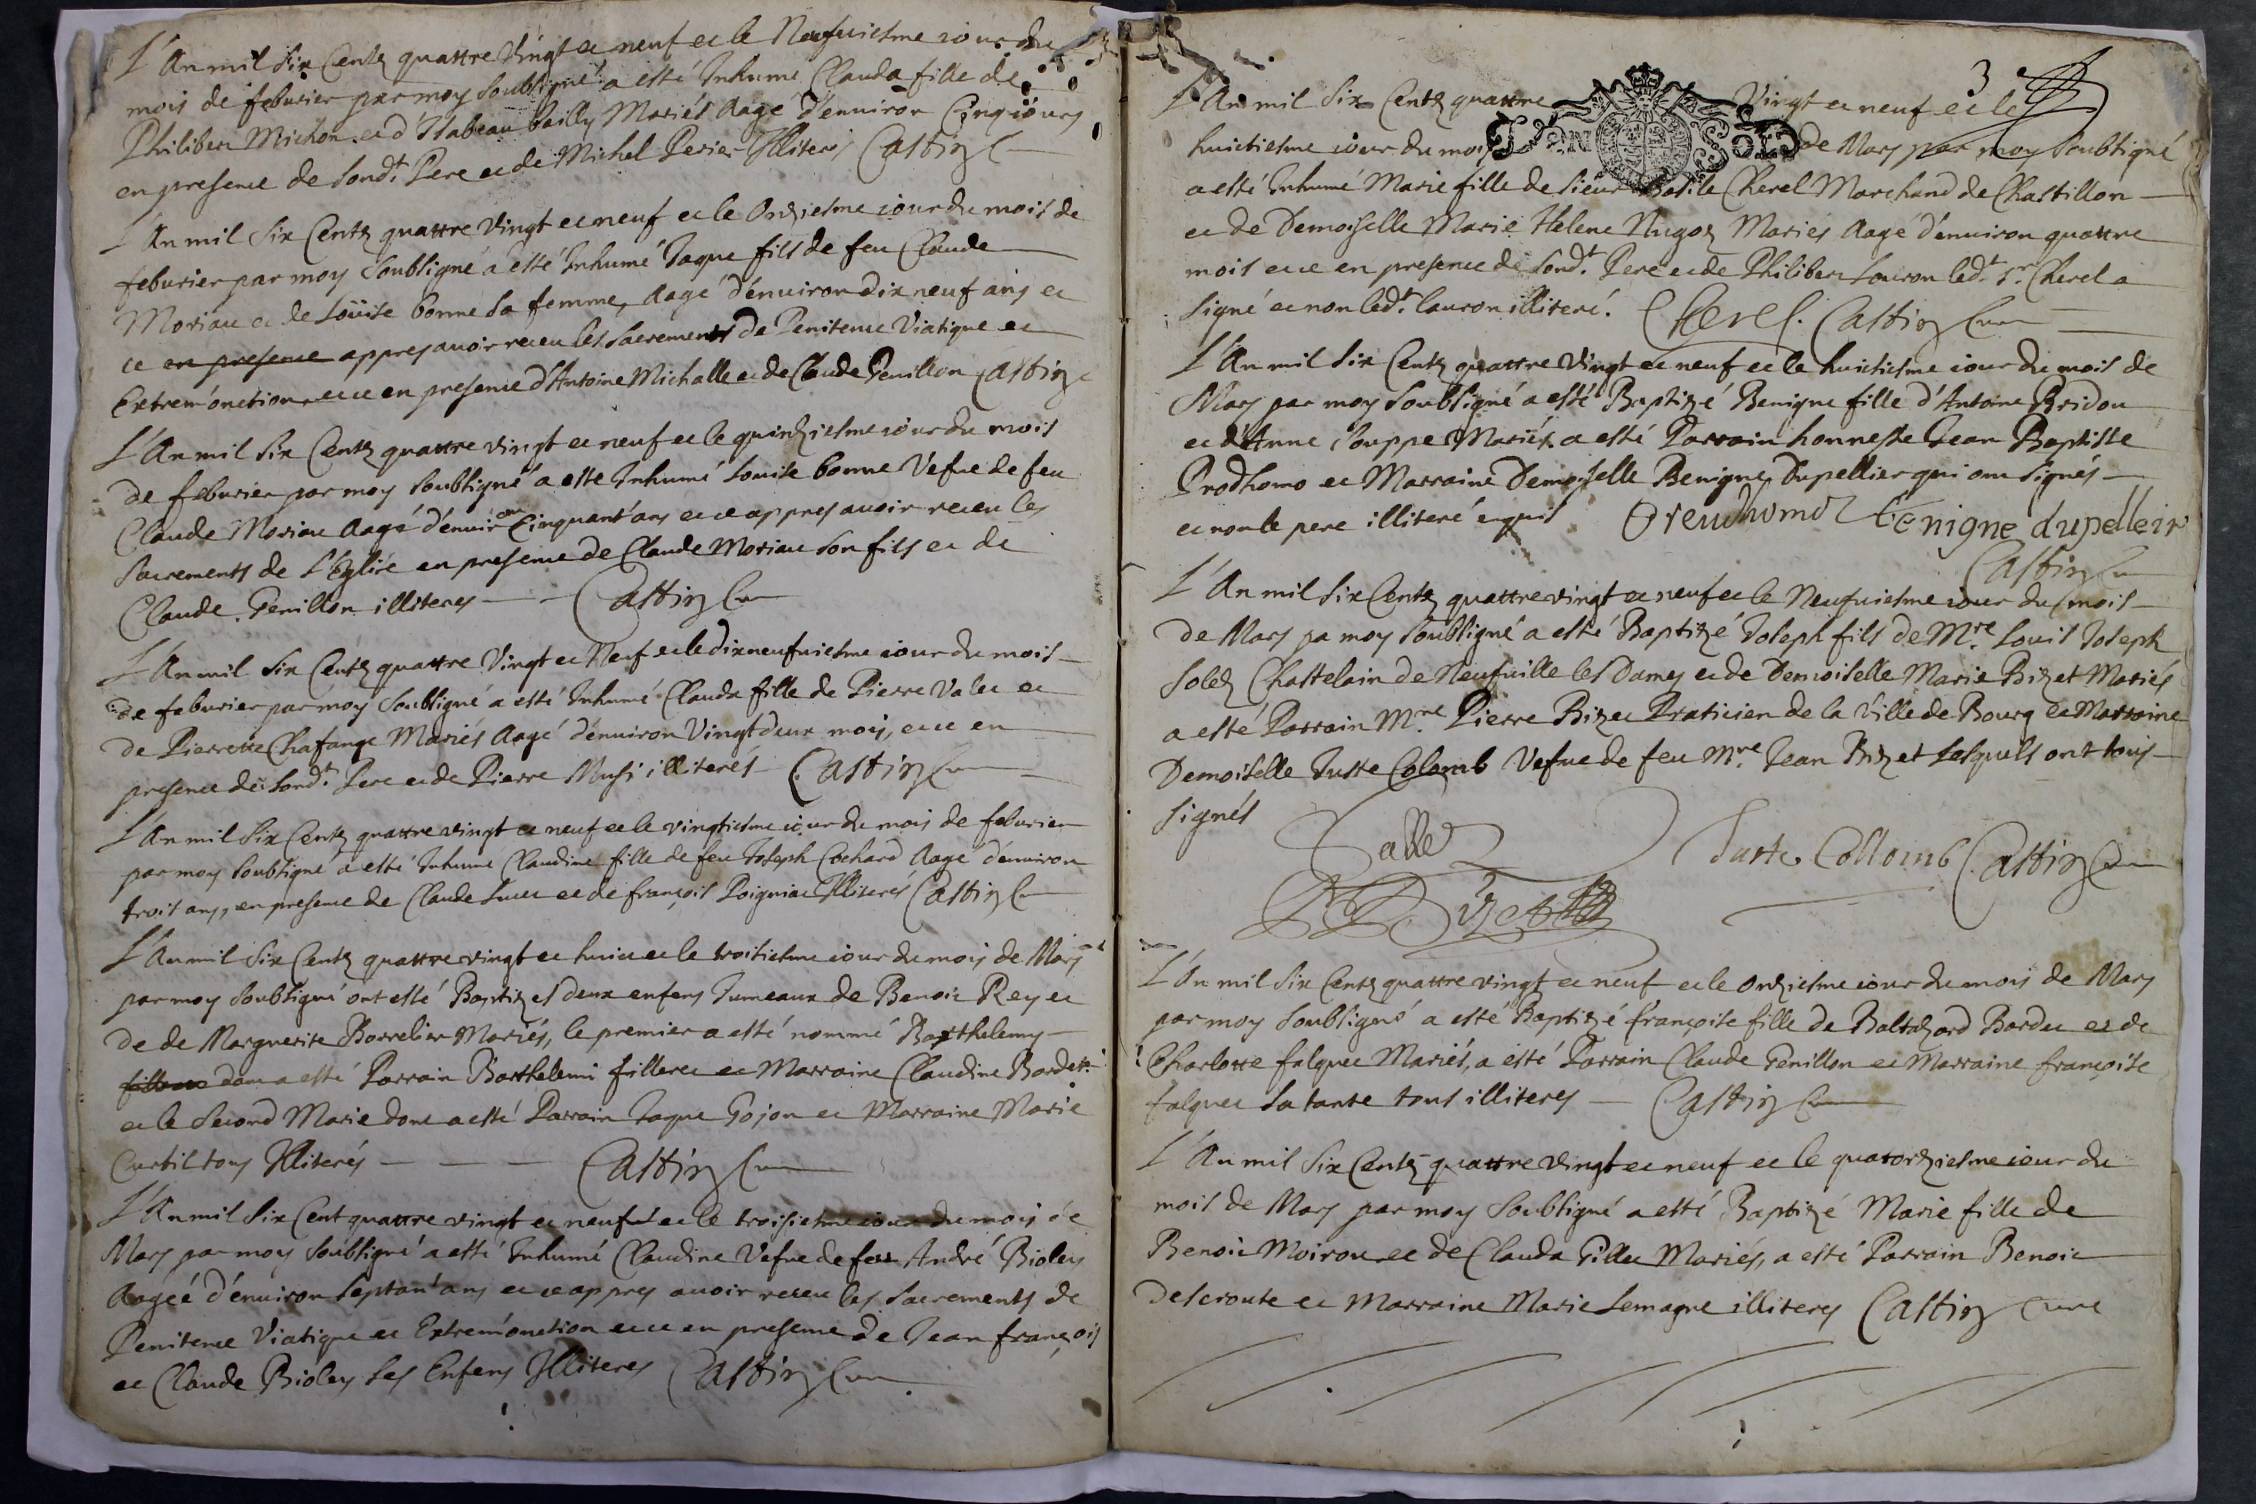 L'An mil Six Centz quattre Vingt et neuf et le Neufuiesme iour du
mois de feburier par moy soubsigné a esté Inhumé Clauda fille de
Philibert Michon et d'Isabeau bailly Mariés Aagé d'enuiron Cinq iours
en presence de sondt. Pere et de Michel Perier Illiterés Castin C
L'An mil Six Centz quattre Vingt et neuf et le Onziesme iour du mois de
feburier par moy soubsigné a esté Inhumé Jaque fils de feu Claude
Moriau et de Loüise bonne sa femme, Aagé d'enuiron dix neuf ans et
ce en presence appres auoir receu les sacrements de Penitence Viatique et
Extrem'onction et ce en presence d'Antoine Michalle et de Claude Genillon Castin
L'An mil Six Centz quattre vingt et neuf et le quinziesme iour du mois
de feburier par moy soubsigné a esté Inhumé Louise bonne Vefue de feu
Claude Moriau Aagé d'enuiron Cinquant'ans et ce appres auoir receu les
sacrements de L'Eglise en presence de Claude Moriau son fils et de
Claude Genillon illiteres Castin Cure
L'An mil Six Centz quattre Vingt et Neuf et le dixneufuiesme iour du mois
de feburier par moy soubsigné a esté Inhumé Clauda fille de Pierre Valet et
de Pierrette Chafange Mariés Aagé d'enuiron Vingt deux mois, et ce en
presence de sondt. Pere et de Pierre Musi illiterés Castin Cure
L'An mil Six Centz quattre vingt et neuf et le vingtiesme iour du mois de feburier
par moy soubsigné a esté Inhumé Claudine fille de feu Joseph Cochard Aagé d'enuiron
trois ans, en presence de Claude et de françois Illiterés Castin C
L'An mil Six Centz quattre vingt et huict et le troisiesme iour du mois de Mars
par moy soubsigné ont esté Baptizes deux enfens Jumeaux de Benoit Rey et
de de Marguerite Borrelier Mariés, le premier a esté nommé Barthelemy
dont a esté Parrain Barthelemi filleret et Marraine Claudine Bardet
et le second Marie dont a esté Parrain Jaque Gojon et Marraine Marie
Curtil tous Illiterés Castin Cure
L'An mil Six Cent quattre vingt et neuf et le troisiesme iour du mois de
Mars par moy soubsigné a esté Inhumé Claudine Vefue de feu André Bioley
Aagéé d'enuiron septant'ans et ce appres auoir receu les sacrements de
Penitence Viatique et Extrem'onction et ce en presence de Jean françois
et Claude Bioley ses Enfens Illiteres Castin Cure
3
L'An mil Six Centz quattre Vingt et neuf et le
huictiesme iour du mois de Mars par moy soubsigné
a esté Inhumé Marie fille de sieur Basile Cherel Marchand de Chastillon
et de Demoiselle Marie Helene Nugoz Mariés Aagé d'enuiron quattre
mois et ce en presence de sondt. Pere et de Philibert Lauron ledt. sr. Cherel a
signé et non ledt. Lauron illiteré. Cherel. Castin Cure
L'An mil Six Centz quattre Vingt et neuf et le huictiesme iour du mois de
Mars par moy soubsigné a esté Baptizé Benigne fille d'Antoine Bridon
et d'Anne Mariés a esté Parrain honneste Jean Baptiste
Prodhomo et Marraine Demoiselle Benigne Dupellier qui ont signés
et non le pere illiteré enquis Preudhomo Benigne dupelleir
Castin Cu
L'An mil Six Centz quattre vingt et neuf et le Neufuiesme iour du mois
de Mars pa moy soubsigné a esté Baptizé Joseph fils de Mre. Louis Joseph
Chastelain de Neufuille les Dames et de Demoiselle Marie Bizet Mariés
a esté Parrain Mre. Pierre Bizet Praticien de la Ville de Bourg et Marraine
Demoiselle Juste Colomb Vefue de feu Mre. Jean Bizet Lesquels ont tous
signés
Juste Collomb Castin Cure
Bizet
L'An mil Six Centz quattre vingt et neuf et le Onziesme iour du mois de Mars
par moy soubsigné a esté Baptizé françoise fille de Baltazard Bardet et de
Charlotte falquet Mariés, a esté Parrain Claude Genillon et Marraine françoise
falquet sa tante tous illiteres Castin Cure
L'An mil Six Centz quattre Vingt et neuf et le quatorziesme iour du
mois de Mars par moy soubsigné a esté Baptizé Marie fille de
Benoit Moiroux et de Clauda Gillet Mariés, a esté Parrain Benoit
Descroute et Marraine Marie Lemagne illiteres Castin Cure